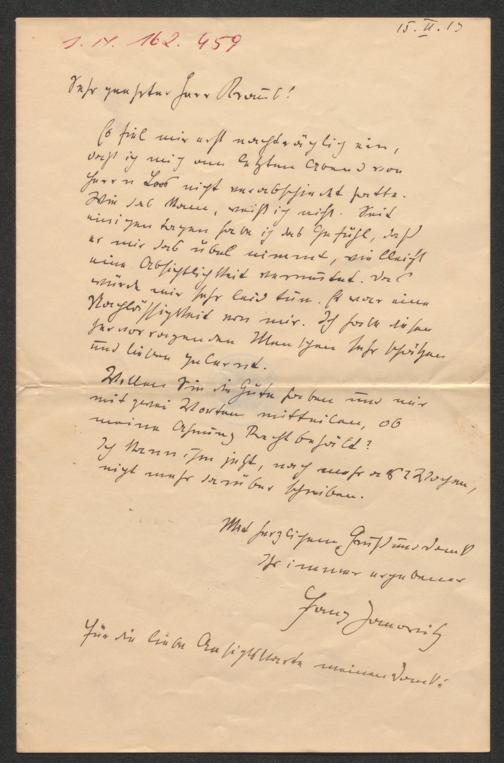 15. II. 13
I. N. 162.459
Sehr geehrter Herr Kraus!
Es fiel mir erst nachträglich ein,
daß ich mich am letzten Abend von
Herrn Loos nicht verabschiedet hatte.
Wie das kam, weiß ich nicht. Seit
einigen Tagen habe ich das Gefühl, daß
er mir das übel nimmt, vielleicht
eine Absichtlichkeit vermutet. Das
würde mir sehr leid tun. Es war eine
Nachlässigkeit von mir. Ich habe diesen
hervorragenden Menschen sehr schätzen
und lieben gelernt.
Wollen Sie die Güte haben und mir
mit zwei Worten mitteilen, ob
meine Ahnung Recht behält?
Ich kann ihm jetzt, nach mehr als 2 Wochen,
nicht mehr darüber schreiben.
Mit herzlichem Gruß und Dank
Ihr immer ergebener
Franz Janowitz
Für die liebe Ansichtskarte meinen Dank!